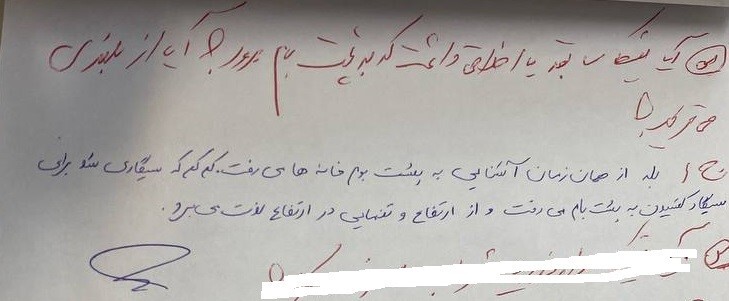 س) آیا سابقه یا اخلاقی داشت که به پشت بام برود؟ آیا از بلندی
می ترسید؟
ج) بله از همان زمان آشنایی به پشت بوم خانه ها می رفت. کم کم که سیگاری شد برای
سیگار کشیدن به پشت بام می رفت و از ارتفاع و تنهایی در ارتفاع لذت می برد.
س)